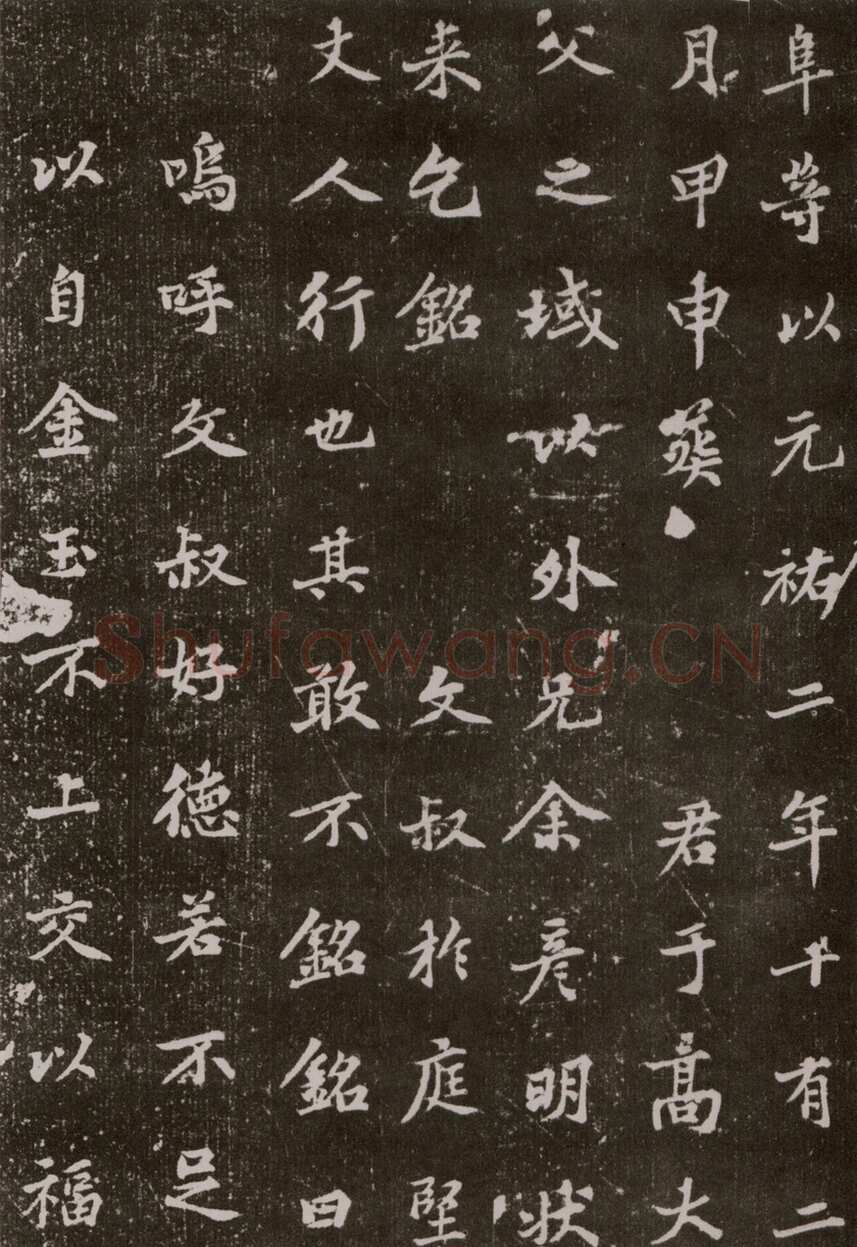 阜等以元祐二年十有二
月甲申葬 君于高大
父之域以外兄余彦明状
来乞銘 文叔於庭堅
丈人行也其敢不銘銘曰
嗚呼文叔好德若不足
以自金玉不上交以福
Shufawang.CN